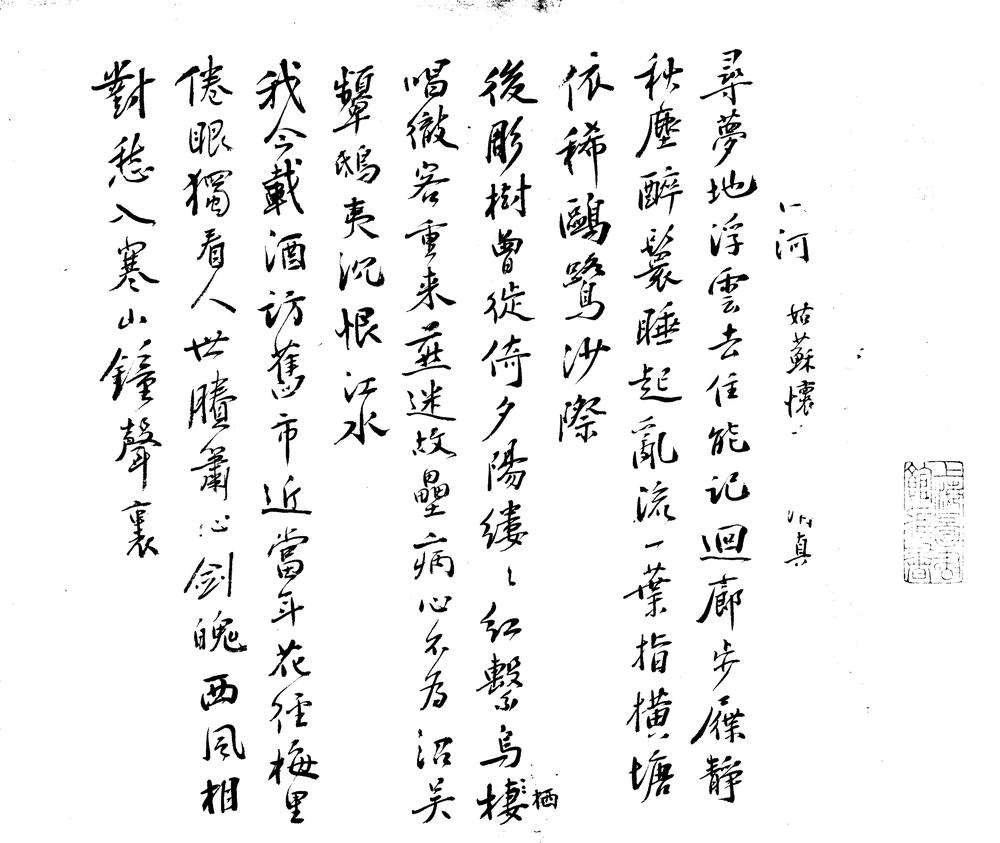 河 姑蘇懷 真
尋夢地浮雲去住能記迴廊步屧靜
秋塵醉鬟睡起亂流一葉指橫塘
依稀鷗鷺沙際
後彫樹曾從倚夕陽縷〻紅繫烏棲〻栖
唱徹客重来燕迷故壘病心不為沼吴
顰鴟夷沉恨江水
我今載酒訪舊市近當年花徑梅里
倦眼獨看人世賸簫心劍魄西風相
對愁入寒山鐘聲裏